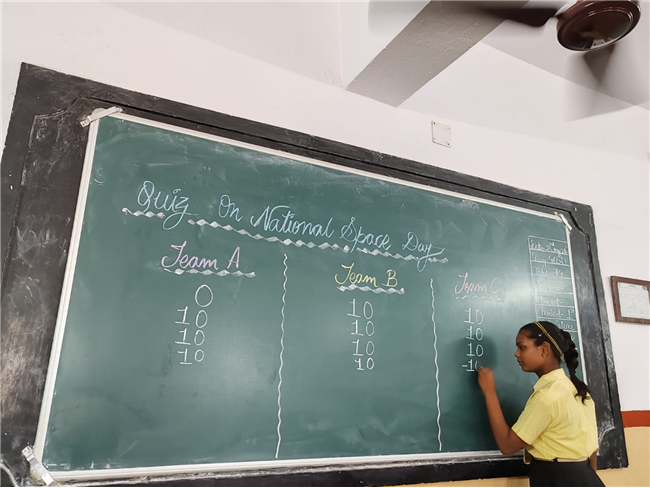 Quiz On National Space Day
Team A
0
10
10
10
Team B
10
10
10
10
Team C
10
10
10